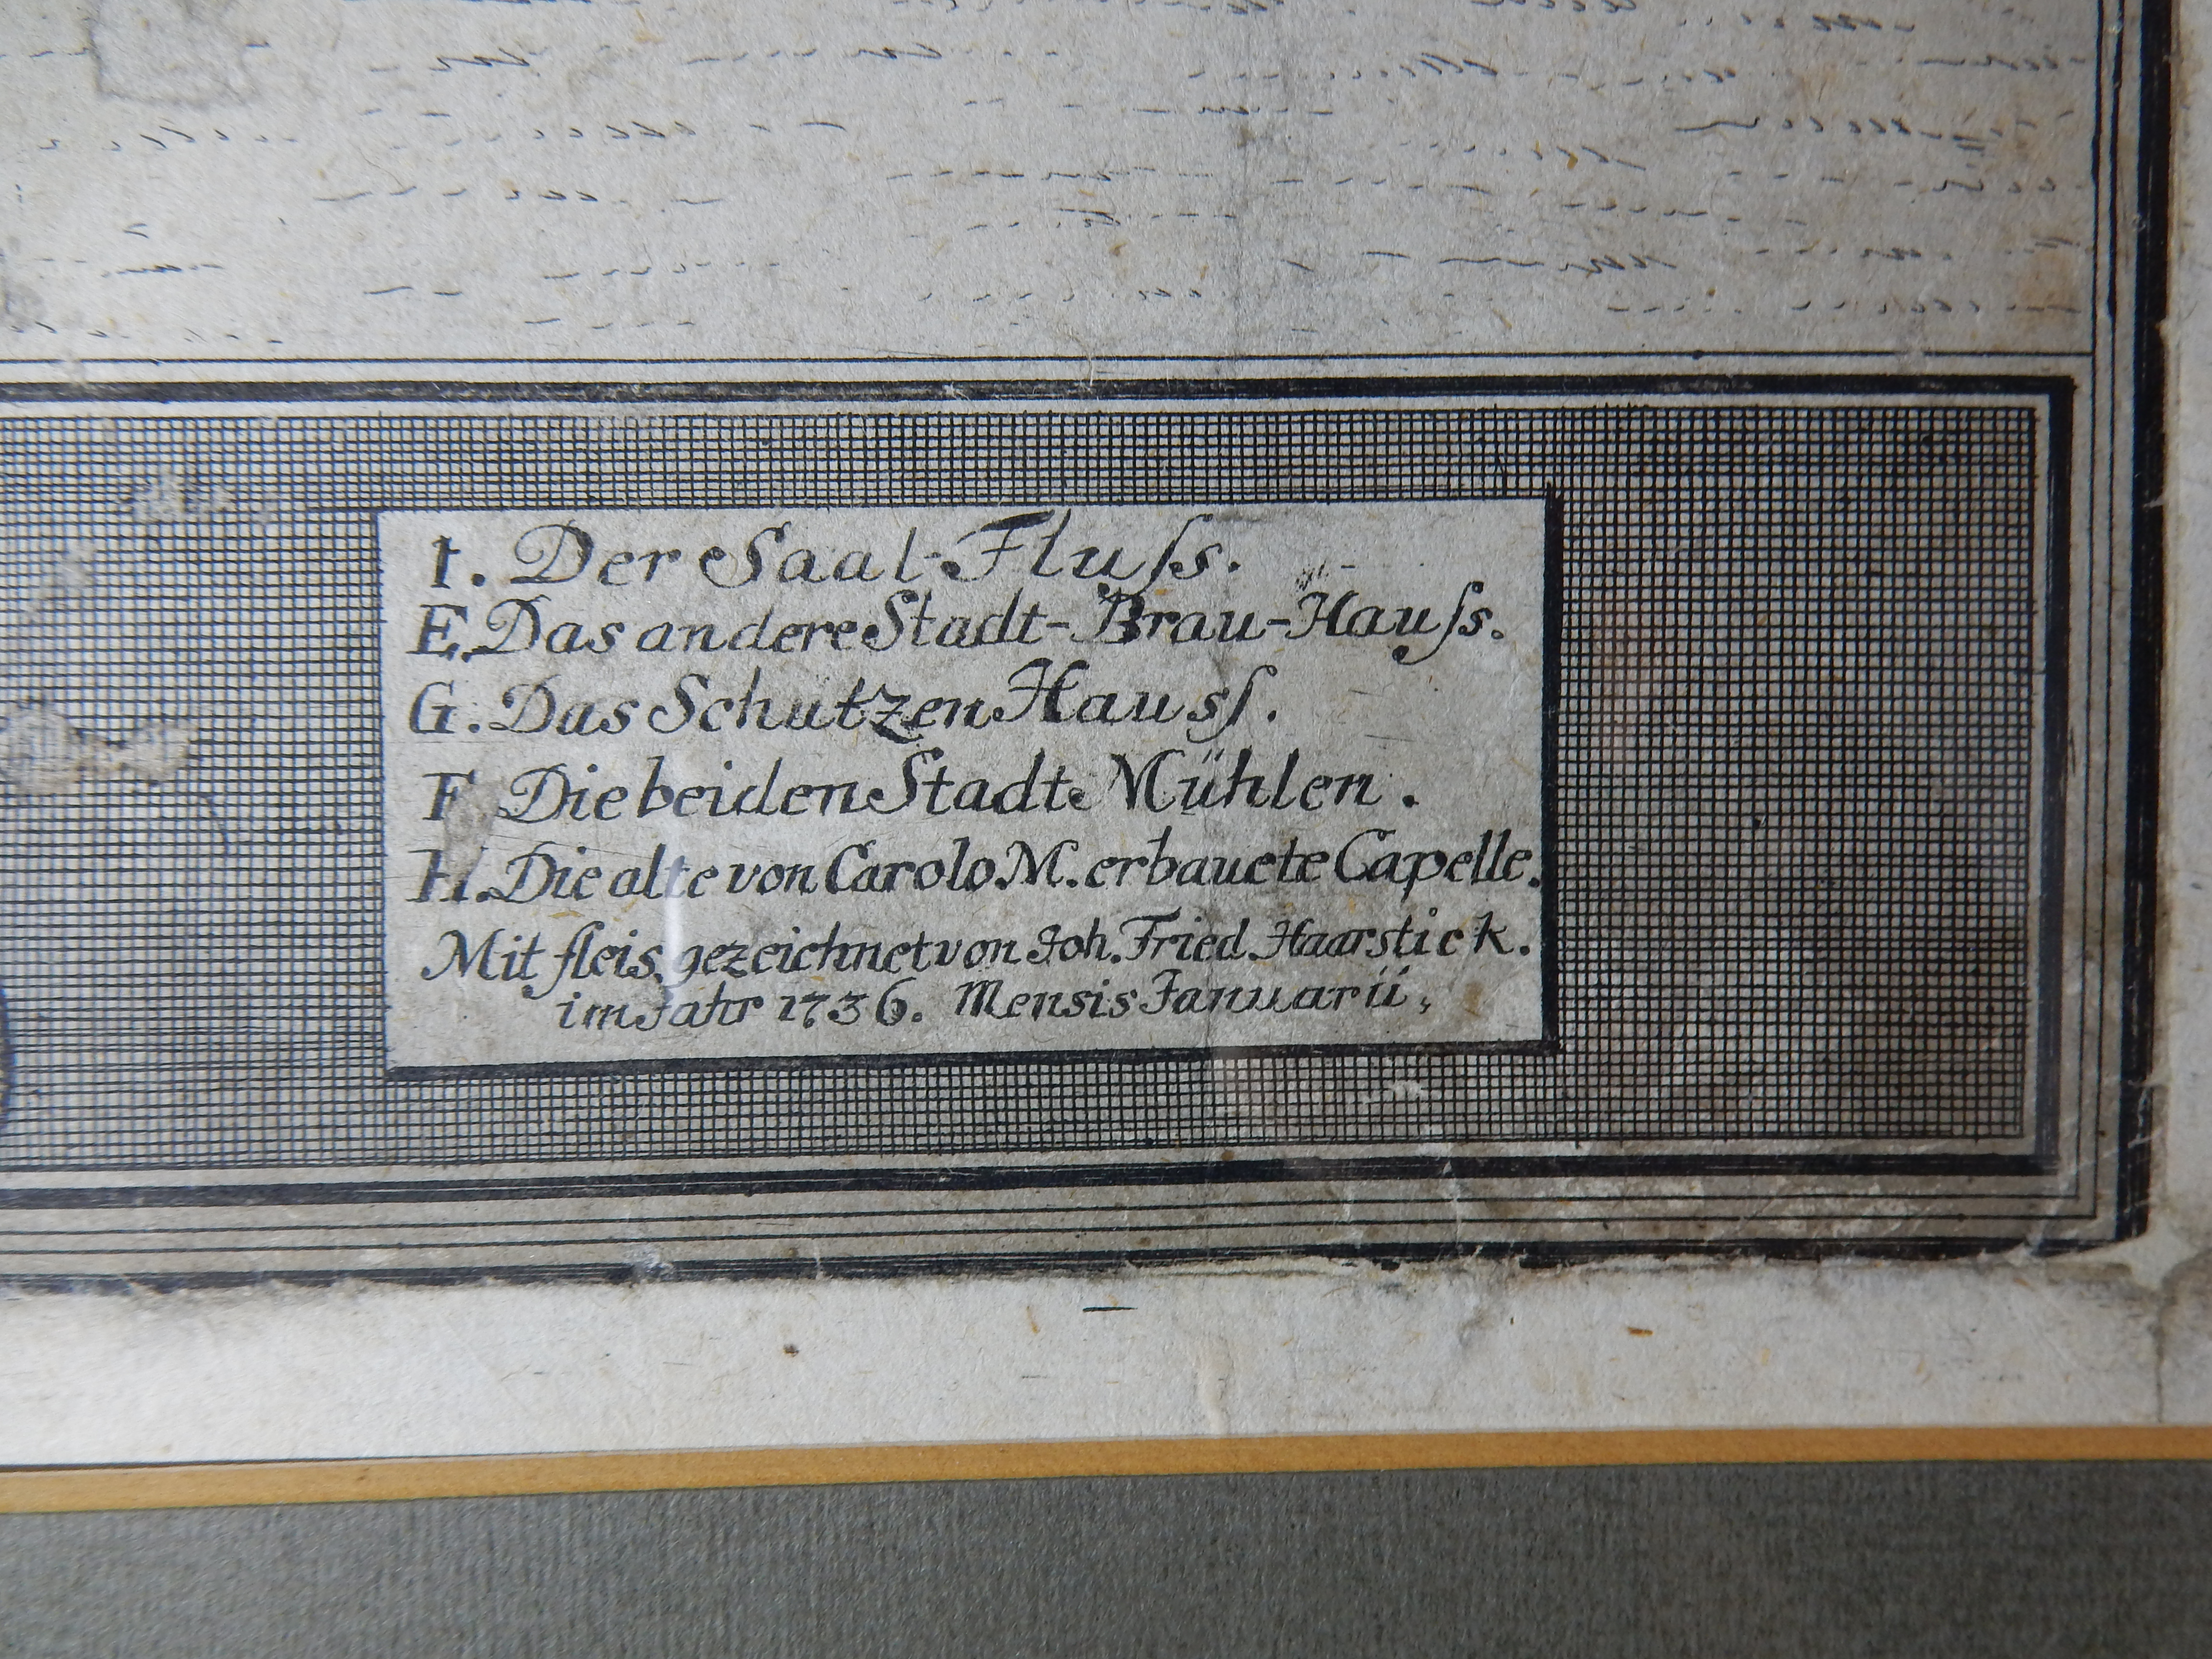 I. Der Saal-Fluſs.
E. Das andere Stadt-Brau-Hauſs.
G. Das Schutzen Hausſ.
F Die beiden Stadt Mühlen.
H. Die alte von Carolo M. erbauete Capelle.
Mit fleis gezeichnet von Joh. Fried. Haarstick.
im Jahr 1736. Mensis Januarii,